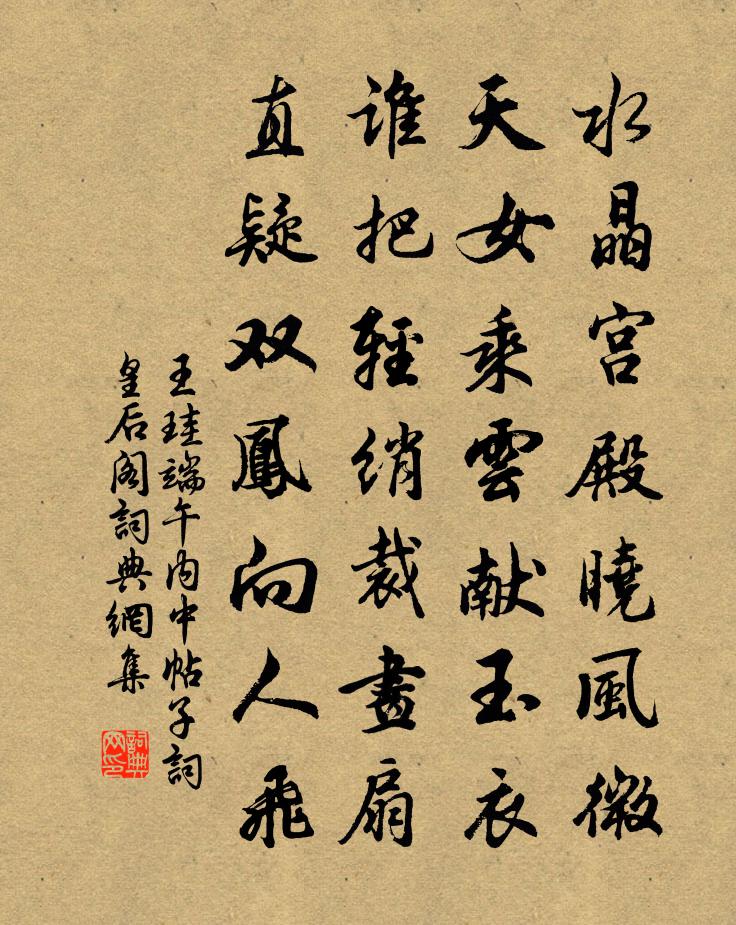 水晶宫殿曉風微
天女乘雲献玉衣
誰把輕綃裁畫扇
直疑双鳳向人飛
王珪端午内中帖子詞
皇后阁詞典網集
詞典网印